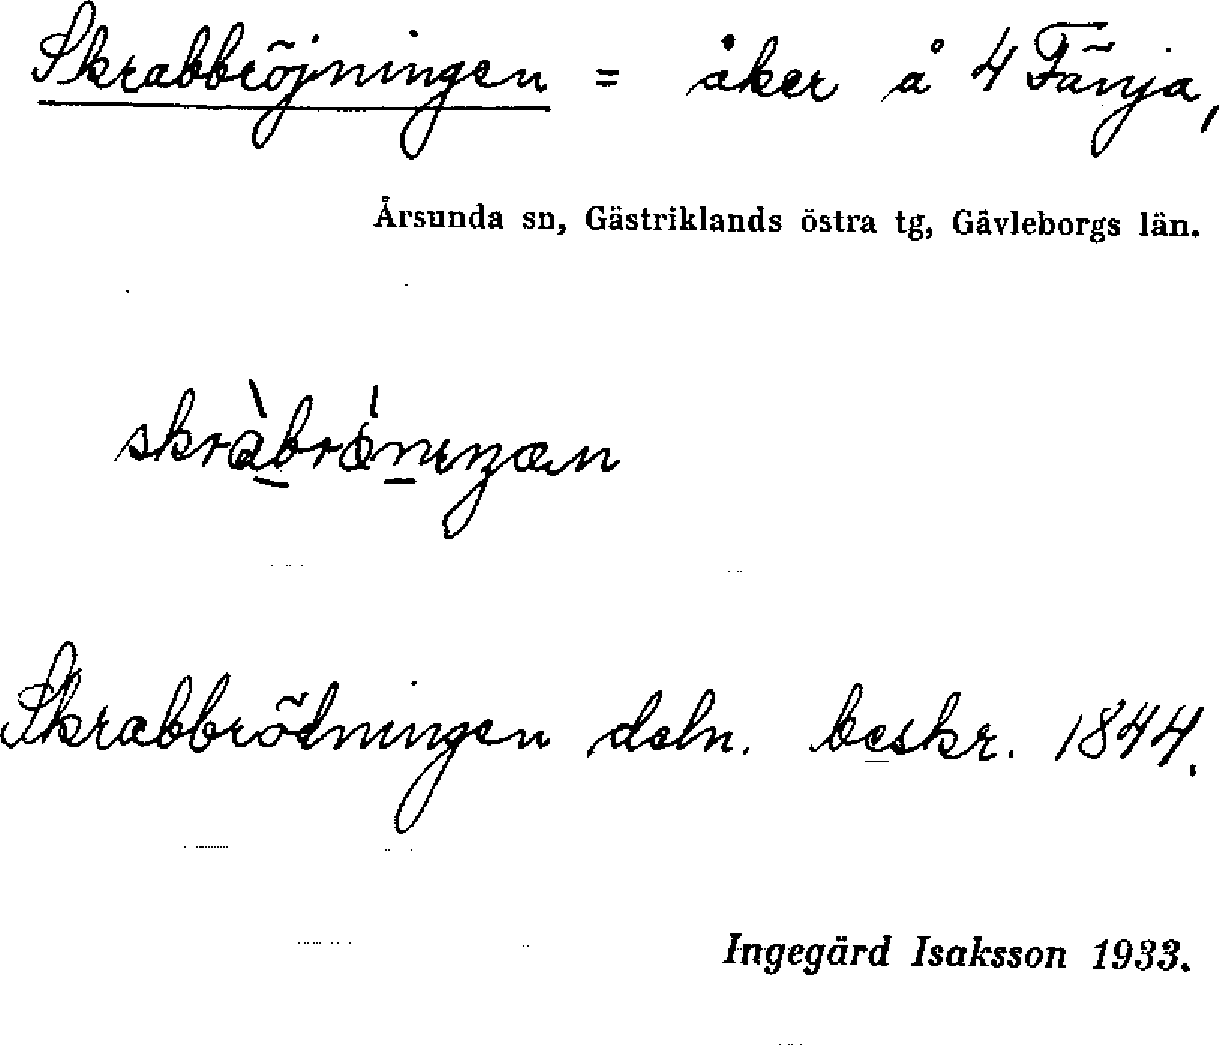 Skrabbröjningen = åker å 4 Fänja,
Årsunda sn, Gästriklands östra tg, Gävleborgs län.
Skrabbrödningen deln. beskr. 1844.
Ingegärd Isaksson 1933.